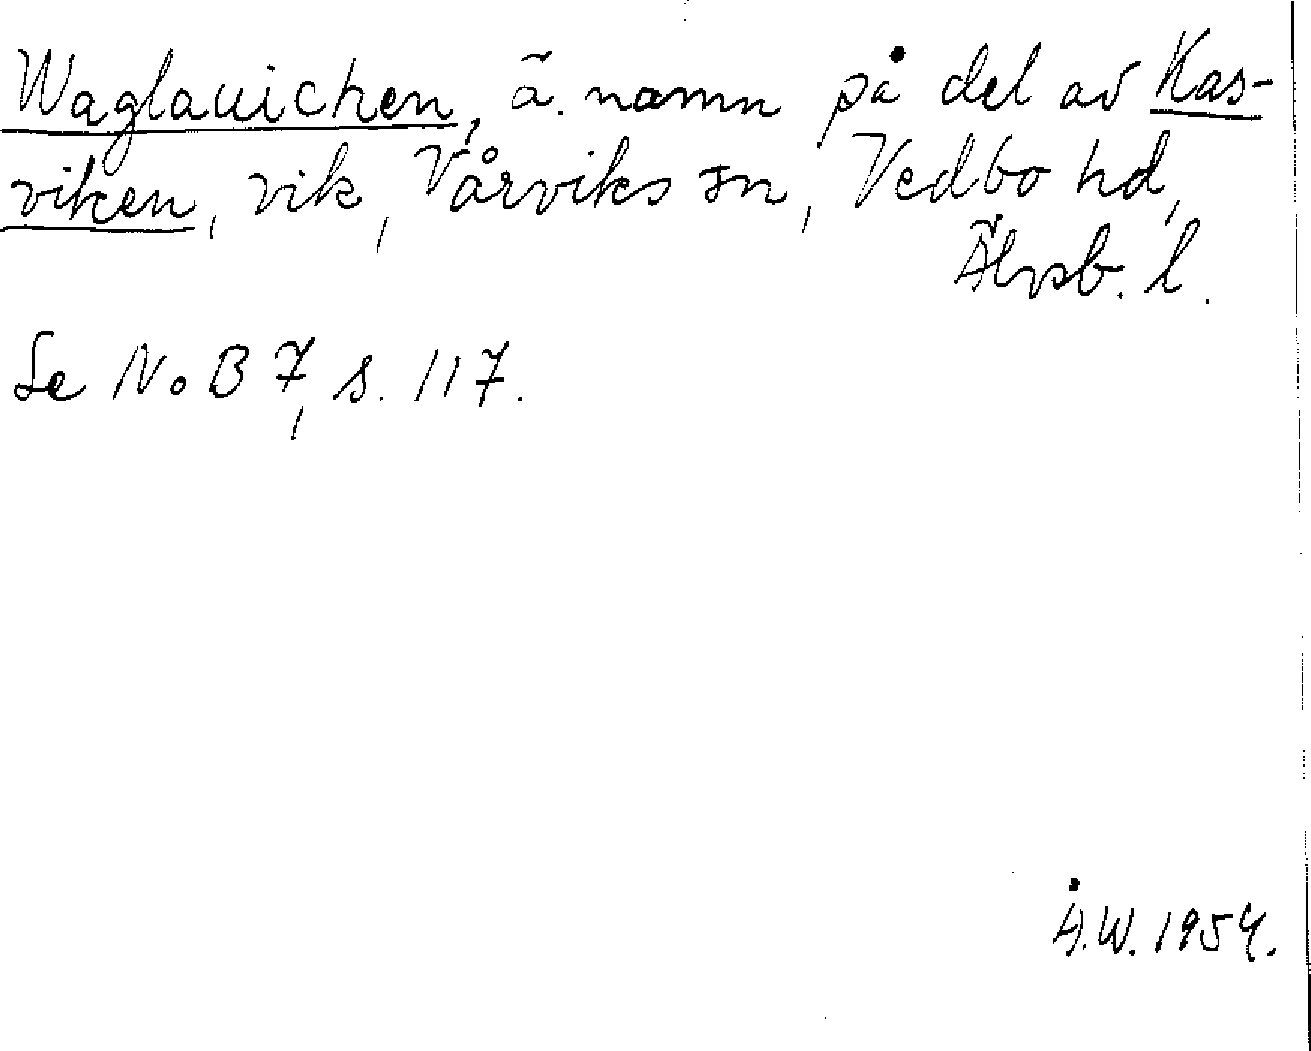 Waglauichen, ä. namn på del av Kas-
viken, vik, Vårviks sn, Vedbo hd,
Älvsb. l.
Se NoB 7, s. 117.
Å.W. 1954.